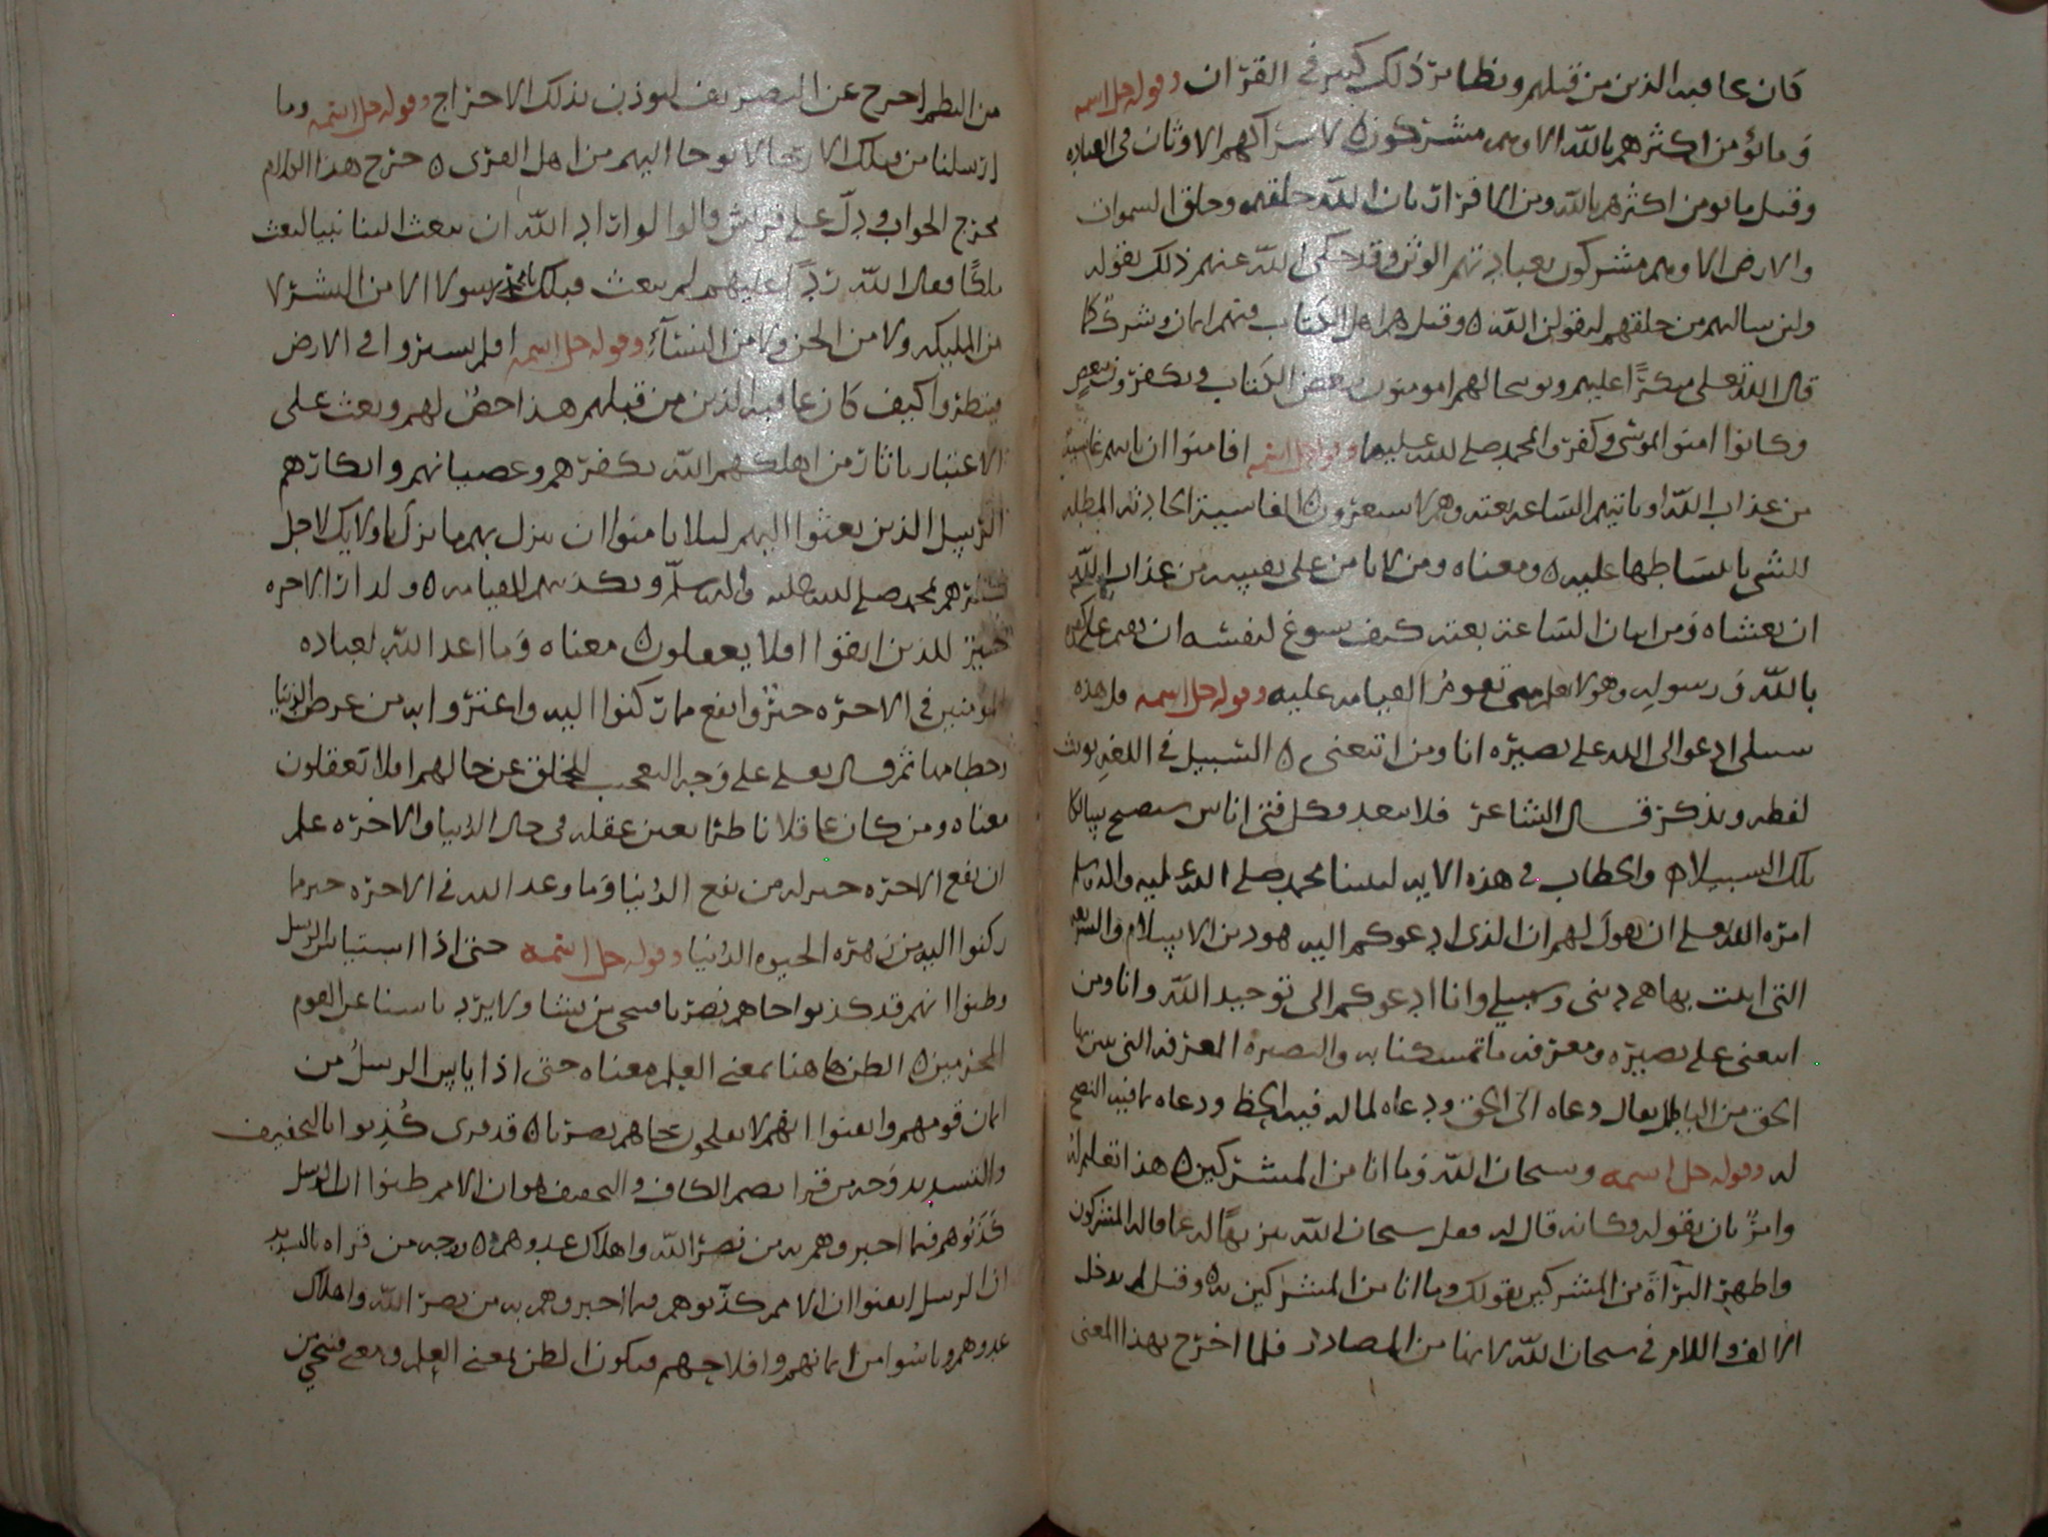 كان عاقبه الذين من قبلهم ونظائر ذلك كثير في القرآن وقوله جل اسمه
وما يؤمن اكثرهم بالله الا وهم مشركون لاشراكهم الاوثان في العباده
وقيل ما يومن اكثرهم بالله وبن الاقرار بان الله خلقهم وخلق السموات
والارض الا وهم مشركون بعبادتهم الوثن وقد حكى الله عنهم ذلك بقوله
ولئن سالتهم من خلقهم ليقولن الله وقيل هم اهل الكتاب فيهم ايمان وشرك كما
قال الله تعلى منكرًا عليهم وتوبيخا لهم افتومنون ببعض الكتاب وتكفرون ببعض
وكانوا امنوا بموسى وكفروا بمحمد صلى الله عليهما وقوله جل اسمه افامنوا ان تاتيهم غاشية
من عذاب الله او تاتيهم الساعه بغته وهم لا يشعرون الغاشية الحادثه المطبله
للشي بانبساطها عليه ومعناه ومن لا يامن على نفسه من عذاب الله
ان يغشاه ومن اتيان الساعة بغته كيف يسوغ لنفسه ان يقيم على كفر
بالله ورسوله وهو لا يعلم متى تقوم القيامه عليه وقوله جل اسمه قل هذه
سبيلي ادعوا الى الله على بصيره انا ومن اتبعني السبيل في اللغه يونث
لفظه ويذكر قال الشاعر فلا تبعد فكل فتى اناس سيصبح سالكا
تلك السبيلا والخطاب في هذه الايه لنبينا محمد صلى الله عليه واله وسلم
امره الله تعلى ان يقول لهم ان الذي ادعوكم اليه هو دين الاسلام والشريعه
التي اتيت بها هي ديني وسبيلي وانا ادعوكم الى توحيد الله وانا ومن
اتبعني على بصيره ومعرفه ما تمسكنا به والبصيرة المعرفه التي يتبين بها
الحق من الباطل يقال دعاه الى الحق ودعاه لما له فيه الحظ ودعاه بما فيه النصح
له وقوله جل اسمه وسبحان الله وما انا من المشركين هذا تعليم له
وامرٌ بان يقوله وكانه قال له فقل سبحان الله تنزيهًا له عما قاله المشركون
واظهر البرآة من المشركين بقولك وما انا من المشركين به وقيل لم يدخل
الالف واللام في سبحان الله لانها من المصادر فلما اخرج بهذا المعنى
من النظم اخرج عن التصريف ليوذن بذلك الاخراج وقوله جل اسمه وما
ارسلنا من قبلك الا رجالا يوحا اليهم من اهل القرى خرج هذا الكلام
مخرج الجواب ودلّ على قريش قالوا لو اراد الله ان يبعث الينا نبيا لبعث
ملكًا فقال الله ردًا عليهم لم يبعث قبلك يا محمد رسولا الا من البشر لا
من المليكه ولا من الجن ولا من النسآء وقوله جل اسمه افلم يسيروا في الارض
فينظروا كيف كان عاقبه الذين من قبلهم هذا حضٌ لهم وبعث على
الاعتبار باثار من اهلكهم الله بكفرهم وعصيانهم وانكارهم
الرسل الذين بعثوا اليهم ليلا يامنوا ان ينزل بهم ما نزل باوليك لاجل
كفرهم بمحمد صلى الله عليه واله وسلم وبكذبهم بالقيامه ولدار الاخره
خير للذين اتقوا افلا يعقلون معناه وما اعد الله لعباده
المومنين في الاخره خيرٌ وانفع مما ركنوا اليه واغتروا به من عرض الدنيا
وحطامها ثم قال تعلى على وجه التعجب للخلق عن حالهم افلا تعقلون
معناه ومن كان عاقلا ناظرا بعين عقله في حال الدنيا والاخره علم
ان نفع الاخره خير له من نفع الدنيا وما وعد الله في الاخره خير مما
ركنوا اليه من زهره الحيوه الدنيا وقوله جل اسمه حتى اذا استياس الرسل
وظنوا انهم قد كذبوا جاهم نصرنا فنجي من نشا ولا يرد باسنا عن القوم
المجرمين الظن هاهنا بمعنى العلم معناه حتى اذا يايس الرسل من
ايمان قومهم وايقنوا انهم لا يفلحون جاهم نصرنا قد قرى كُذِبوا بالتخفيف
والتشديد وجه من قرا بضم الكاف والتخفيف هو ان الامم ظنوا ان الرسل
كذبوهم فيما اخبروهم به من نصر الله واهلاك عدوهم ووجه من قراه بالتشديد
ان الرسل ايقنوا ان الامم كذّبوهم فيما اخبروهم به من نصر الله واهلاك
عدوهم ويائسوا من ايمانهم وافلاحهم فيكون الظن بمعنى العلم ومعنى فنجي من